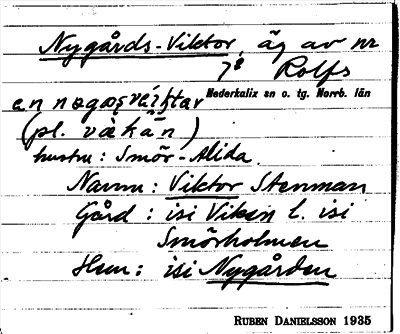 Nygårds-Viktor, äg av nr
7⁸ Rolfs
Nederkalix sn o. tg. Norrb. län
(pl. väkän)
hustru: Smör-Alida.
Namn: Viktor Stenman
Gård: isi Viken l. isi
Smörholmen
Hem: isi Nygården
RUBEN DANIELSSON 1935